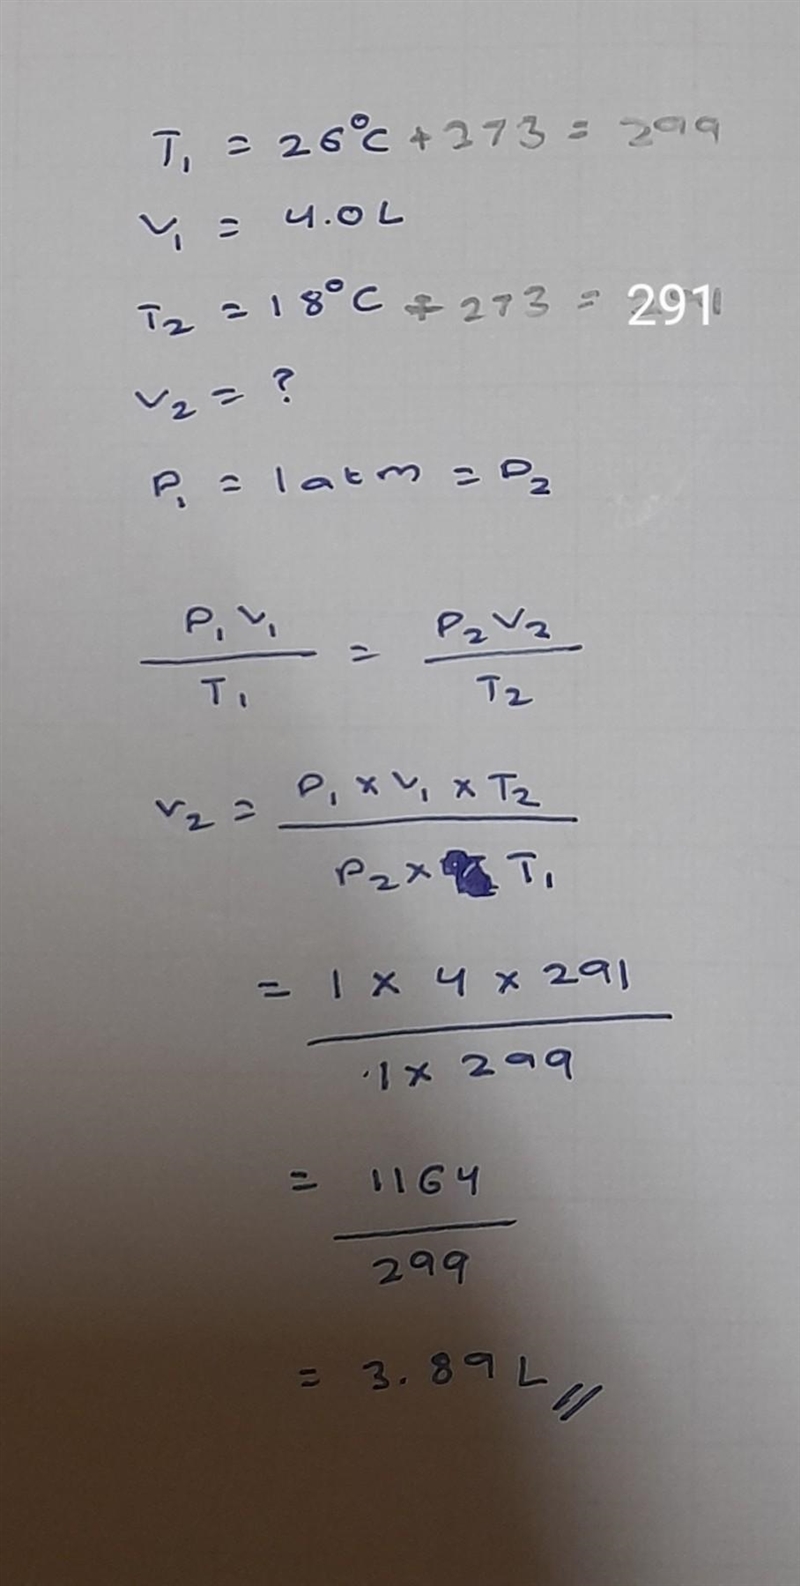 T₁ = 26°C + 273 = 299
V₁ = 4.0L
T₂ = 18°C + 273 = 291
V₂ = ?
P₁ = 1atm = P₂
P₁V₁ / T₁ = P₂V₂ / T₂
V₂ = P₁ × V₁ × T₂ / P₂ × T₁
= 1 × 4 × 291 / 1 × 299
= 1164 / 299
= 3.89L //